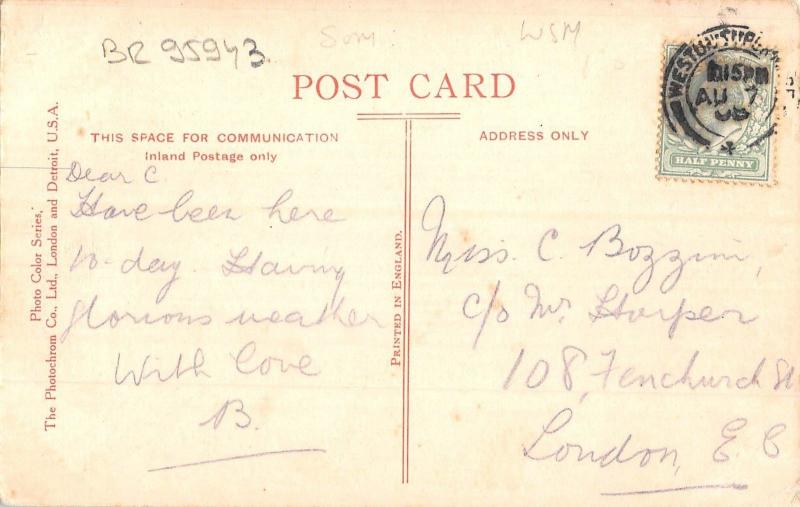 BR 95943
Som:
WSM
POST CARD
THIS SPACE FOR COMMUNICATION
Inland Postage only
ADDRESS ONLY
Dear C.
Have been here
to-day. Having
glorious weather
With love
B.
Photo Color Series,
The Photochrom Co., Ltd., London and Detroit, U.S.A.
PRINTED IN ENGLAND.
Miss. C. Bozzini,
c/o Mr Harper
108, Fenchurch St
London, E. C
AU 7
HALF PENNY